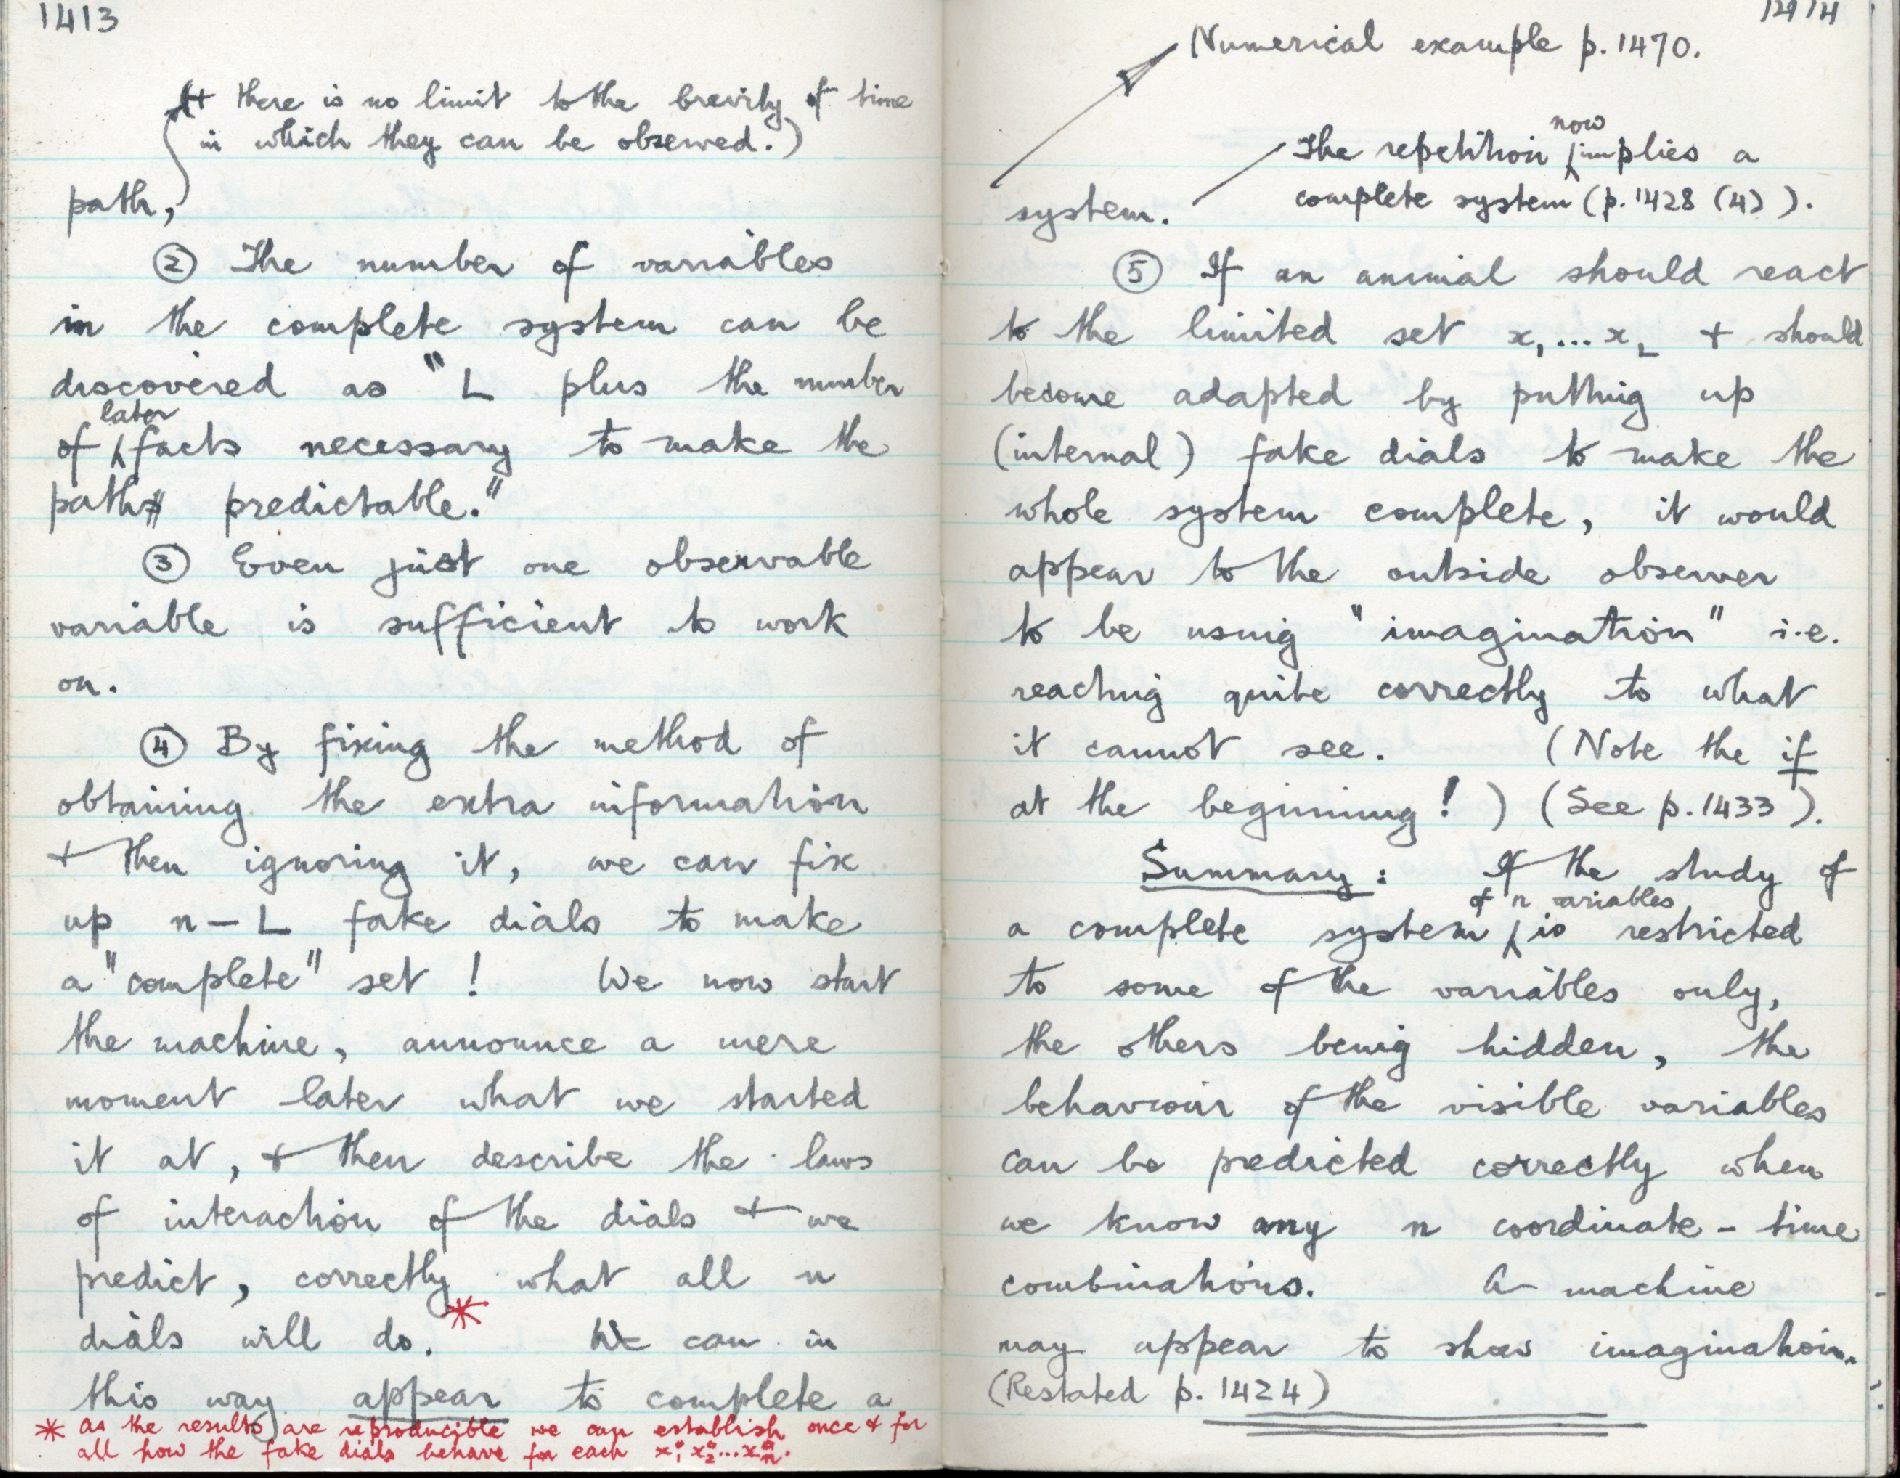 1413
(+ there is no limit to the brevity of time
in which they can be observed.)
path,
② The number of variables
in the complete system can be
discovered as "L plus the number
later
of facts necessary to make the
path predictable."
③ Even just one observable
variable is sufficient to work
on.
④ By fixing the method of
obtaining the extra information
+ then ignoring it, we can fix
up n-L fake dials to make
a "complete" set! We now start
the machine, announce a mere
moment later what we started
it at, + then describe the laws
of interaction of the dials + we
predict, correctly what all n
dials will do.* We can in
this way appear to complete a
* As the results are reproducible we can establish once + for
all how the fake dials behave for each x₁⁰ x₂⁰...xₙ⁰.
1414
Numerical example p.1470.
now
The repetition implies a
complete system (p.1428 (4)).
system.
⑤ If an animal should react
to the limited set x₁...x_L + should
become adapted by putting up
(internal) fake dials to make the
whole system complete, it would
appear to the outside observer
to be using "imagination" i.e.
reacting quite correctly to what
it cannot see. (Note the if
at the beginning!) (See p.1433).
Summary: If the study of
of n variables
a complete system is restricted
to some of the variables only,
the others being hidden, the
behaviour of the visible variables
can be predicted correctly when
we know any n coordinate-time
combinations. A machine
may appear to show imagination.
(Restated p.1424)